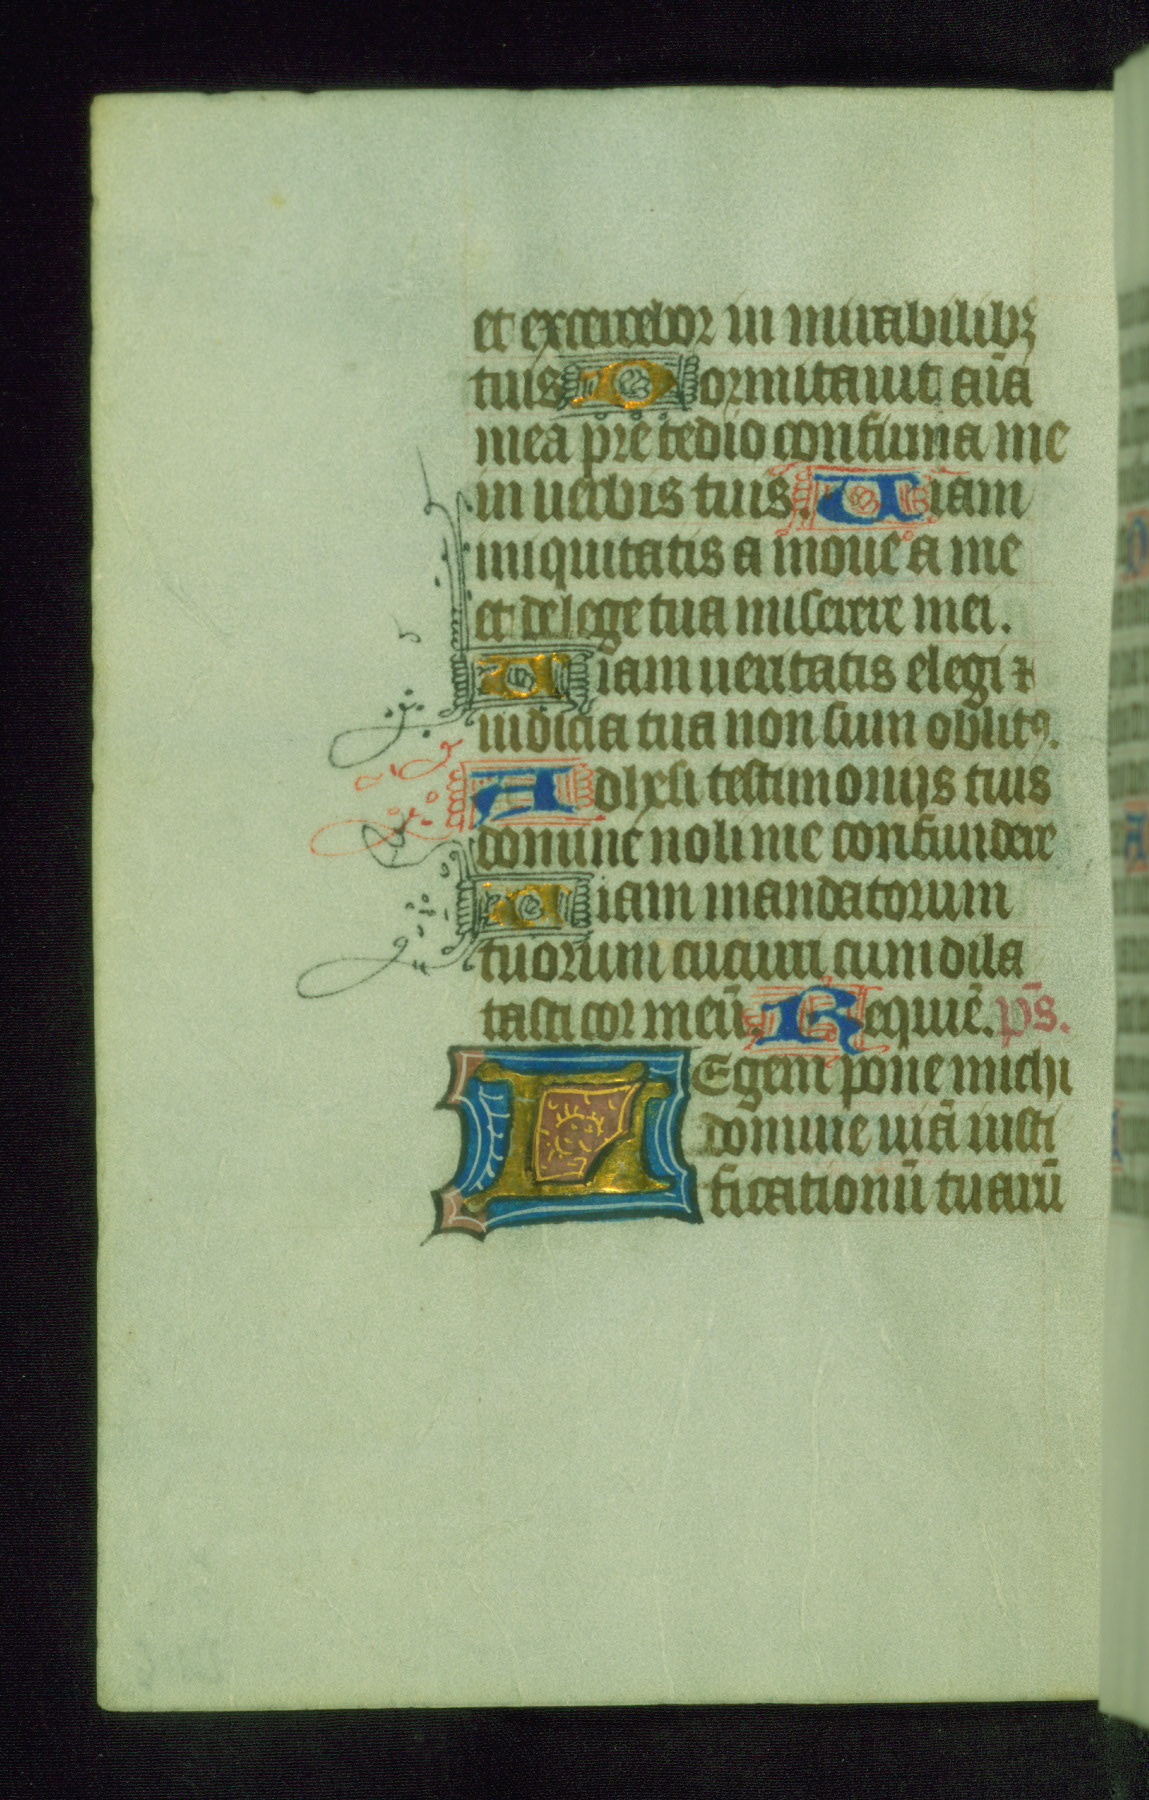 et exercebor in mirabilibꝫ
tuis Dormitauit aīa
mea pre tedio confirma me
in uerbis tuis. Uiam
iniquitatis a moue a me
et de lege tua miserere mei.
Uiam ueritatis elegi ⁊
iudicia tua non sum oblitꝰ.
Adhesi testimonijs tuis
domine noli me confundere
Uiam mandatorum
tuorum cucurri cum dila
tasti cor meū. Requiē. p̄s.
LEgem pone michi
domine uiā iusti
ficationū tuarū